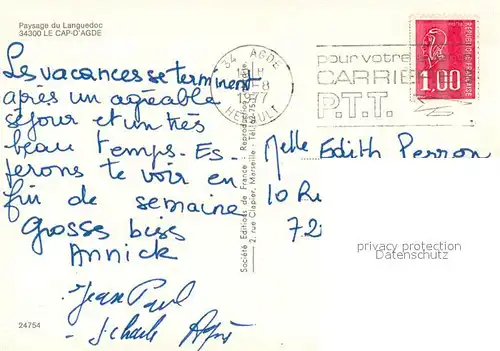 Paysage du Languedoc
34300 LE CAP-D'AGDE
Les vacances se terminent
après un agréable
séjour et un très
beau temps. Es-
perons te voir en
fin de semaine
Grosses bises
Annick
Jean Paul
24754
Société Editions de France - Reproduction
2, rue Clapier, Marseille - Tél.
34 AGDE
HERAULT
pour votre
CARRIE
P.T.T.
REPUBLIQUE FRANCAISE
1,00
Melle Edith Perron
10 Ru
72
privacy protection
Datenschutz